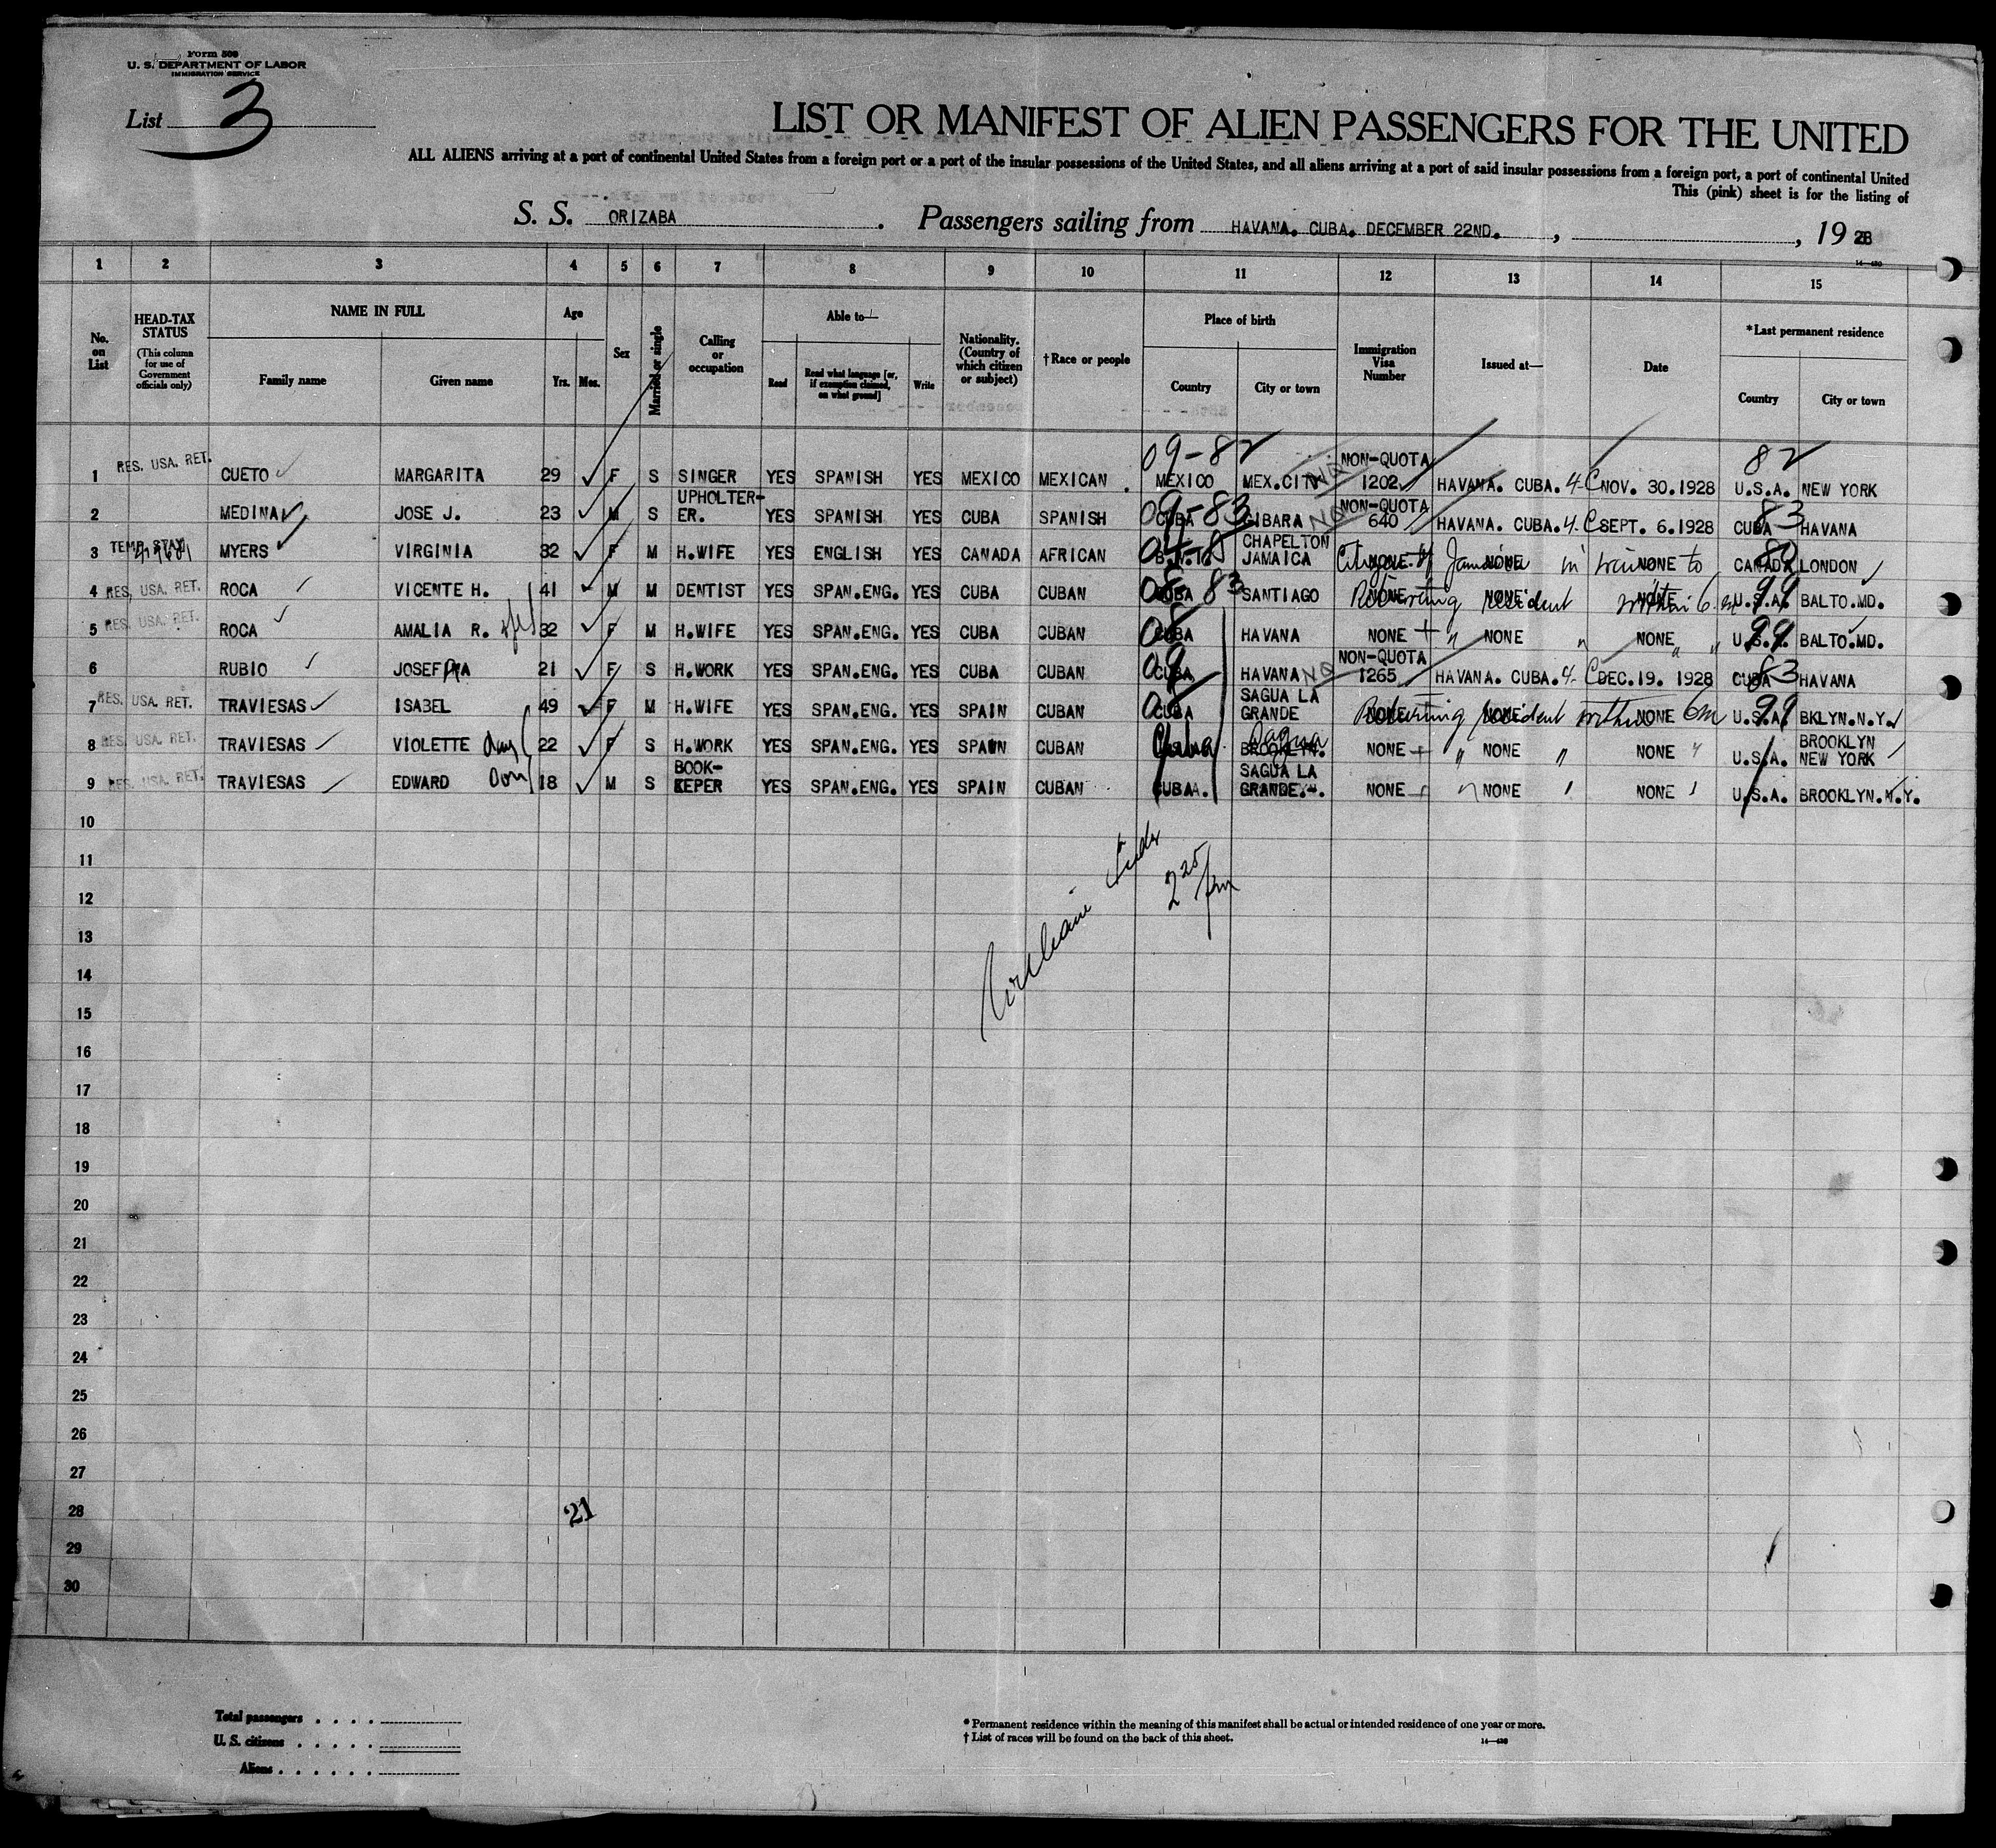 Form 500
U. S. DEPARTMENT OF LABOR
IMMIGRATION SERVICE
List 3
LIST OR MANIFEST OF ALIEN PASSENGERS FOR THE UNITED
ALL ALIENS arriving at a port of continental United States from a foreign port or a port of the insular possessions of the United States, and all aliens arriving at a port of said insular possessions from a foreign port, a port of continental United
This (pink) sheet is for the listing of
S. S. ORIZABA. Passengers sailing from HAVANA. CUBA. DECEMBER 22ND. , , 1928
14—430
1 2 3 4 5 6 7 8 9 10 11 12 13 14 15
No. on List
HEAD-TAX STATUS (This column for use of Government officials only)
NAME IN FULL
Family name Given name
Age
Yrs. Mos.
Sex
Married or single
Calling or occupation
Able to—
Read Read what language [or, if exemption claimed, on what ground] Write
Nationality. (Country of which citizen or subject)
†Race or people
Place of birth
Country City or town
Immigration Visa Number
Issued at—
Date
*Last permanent residence
Country City or town
09-82 82
1 RES. USA. RET. CUETO MARGARITA 29 F S SINGER YES SPANISH YES MEXICO MEXICAN. MEXICO MEX.CITY NON-QUOTA 1202 HAVANA. CUBA. 4-C NOV. 30.1928 U.S.A. NEW YORK
2 MEDINA JOSE J. 23 M S UPHOLTER-ER. YES SPANISH YES CUBA SPANISH CUBA 09-83 GIBARA NON-QUOTA 640 HAVANA. CUBA. 4-C SEPT. 6.1928 CUBA 83 HAVANA
3 TEMP. STAY MYERS VIRGINIA 32 F M H.WIFE YES ENGLISH YES CANADA AFRICAN CHAPELTON JAMAICA NONE Citizen of Jamaica NONE in transit to NONE CANADA LONDON
4 RES. USA. RET. ROCA VICENTE H. 41 M M DENTIST YES SPAN.ENG. YES CUBA CUBAN CUBA 08 83 SANTIAGO NONE Returning resident NONE within 6 m NONE U.S.A. 99 BALTO.MD.
5 RES. USA. RET. ROCA AMALIA R. wife 32 F M H.WIFE YES SPAN.ENG. YES CUBA CUBAN CUBA 08 HAVANA NONE " NONE " NONE " " U.S.A. 99 BALTO.MD.
6 RUBIO JOSEFINA 21 F S H.WORK YES SPAN.ENG. YES CUBA CUBAN CUBA 09 HAVANA NON-QUOTA 1265 HAVANA. CUBA. 4-C DEC.19. 1928 CUBA 83 HAVANA
7 RES. USA. RET. TRAVIESAS ISABEL 49 F M H.WIFE YES SPAN.ENG. YES SPAIN CUBAN CUBA 08 SAGUA LA GRANDE NONE Returning resident NONE within NONE 6m U.S.A. 99 BKLYN.N.Y.
8 RES. USA. RET. TRAVIESAS VIOLETTE dau 22 F S H.WORK YES SPAN.ENG. YES SPAIN CUBAN Cuba Sagua BROOKLYN. NONE " NONE " NONE " U.S.A. BROOKLYN NEW YORK
9 RES. USA. RET. TRAVIESAS EDWARD son 18 M S BOOK-KEPER YES SPAN.ENG. YES SPAIN CUBAN CUBA. SAGUA LA GRANDE. NONE " NONE " NONE " U.S.A. BROOKLYN.N.Y.
10
11
12 2 25 pm
13
14
15
16
17
18
19
20
21
22
23
24
25
26
27
28 21
29
30
Total passengers . . . .
U. S. citizens . . . . .
Aliens . . . . . .
* Permanent residence within the meaning of this manifest shall be actual or intended residence of one year or more.
† List of races will be found on the back of this sheet. 14—430